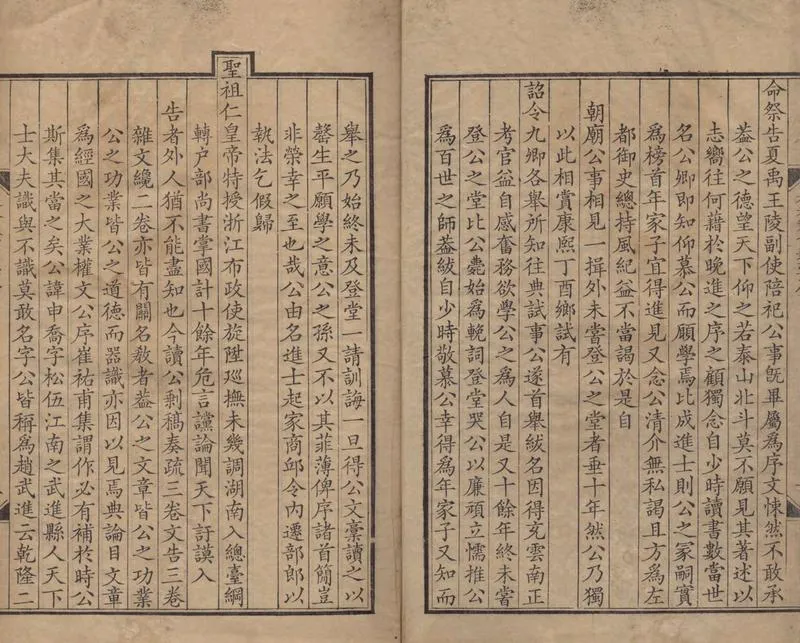 命祭告夏禹王陵副使陪祀公事旣畢屬為序文悚然不敢承
葢公之德望天下仰之若泰山北斗莫不願見其著述以
志嚮往何藉於晚進之序之顧獨念自少時讀書數當世
名公卿即知仰慕公而願學焉比成進士則公之冢嗣實
為榜首年家子宜得進見又念公清介無私謁且方為左
都御史總持風紀益不當謁於是自
朝廟公事相見一揖外未嘗登公之堂者垂十年然公乃獨
以此相賞康熙丁酉鄉試有
詔令九卿各舉所知往典試事公遂首舉紱名因得充雲南正
考官益自感奮務欲學公之為人自是又十餘年終未嘗
登公之堂比公薨始為輓詞登堂哭公以廉頑立懦推公
為百世之師葢紱自少時敬慕公幸得為年家子又知而
舉之乃始終未及登堂一請訓誨一旦得公文稾讀之以
罄生平願學之意公之孫又不以其菲薄俾序諸首簡豈
非榮幸之至也哉公由名進士起家商邱令內遷部郎以
執法乞假歸
聖祖仁皇帝特授浙江布政使旋陞巡撫未幾調湖南入總臺綱
轉户部尚書掌國計十餘年危言讜論聞天下訏謨入
告者外人猶不能盡知也今讀公剩稿奏疏三卷文告三卷
雜文纔二卷亦皆有關名教者葢公之文章皆公之功業
公之功業皆公之道德而器識亦因以見焉典論目文章
為經國之大業權文公序崔祐甫集謂作必有補於時公
斯集其當之矣公諱申喬字松伍江南之武進縣人天下
士大夫識與不識莫敢名字公皆稱為趙武進云乾隆二